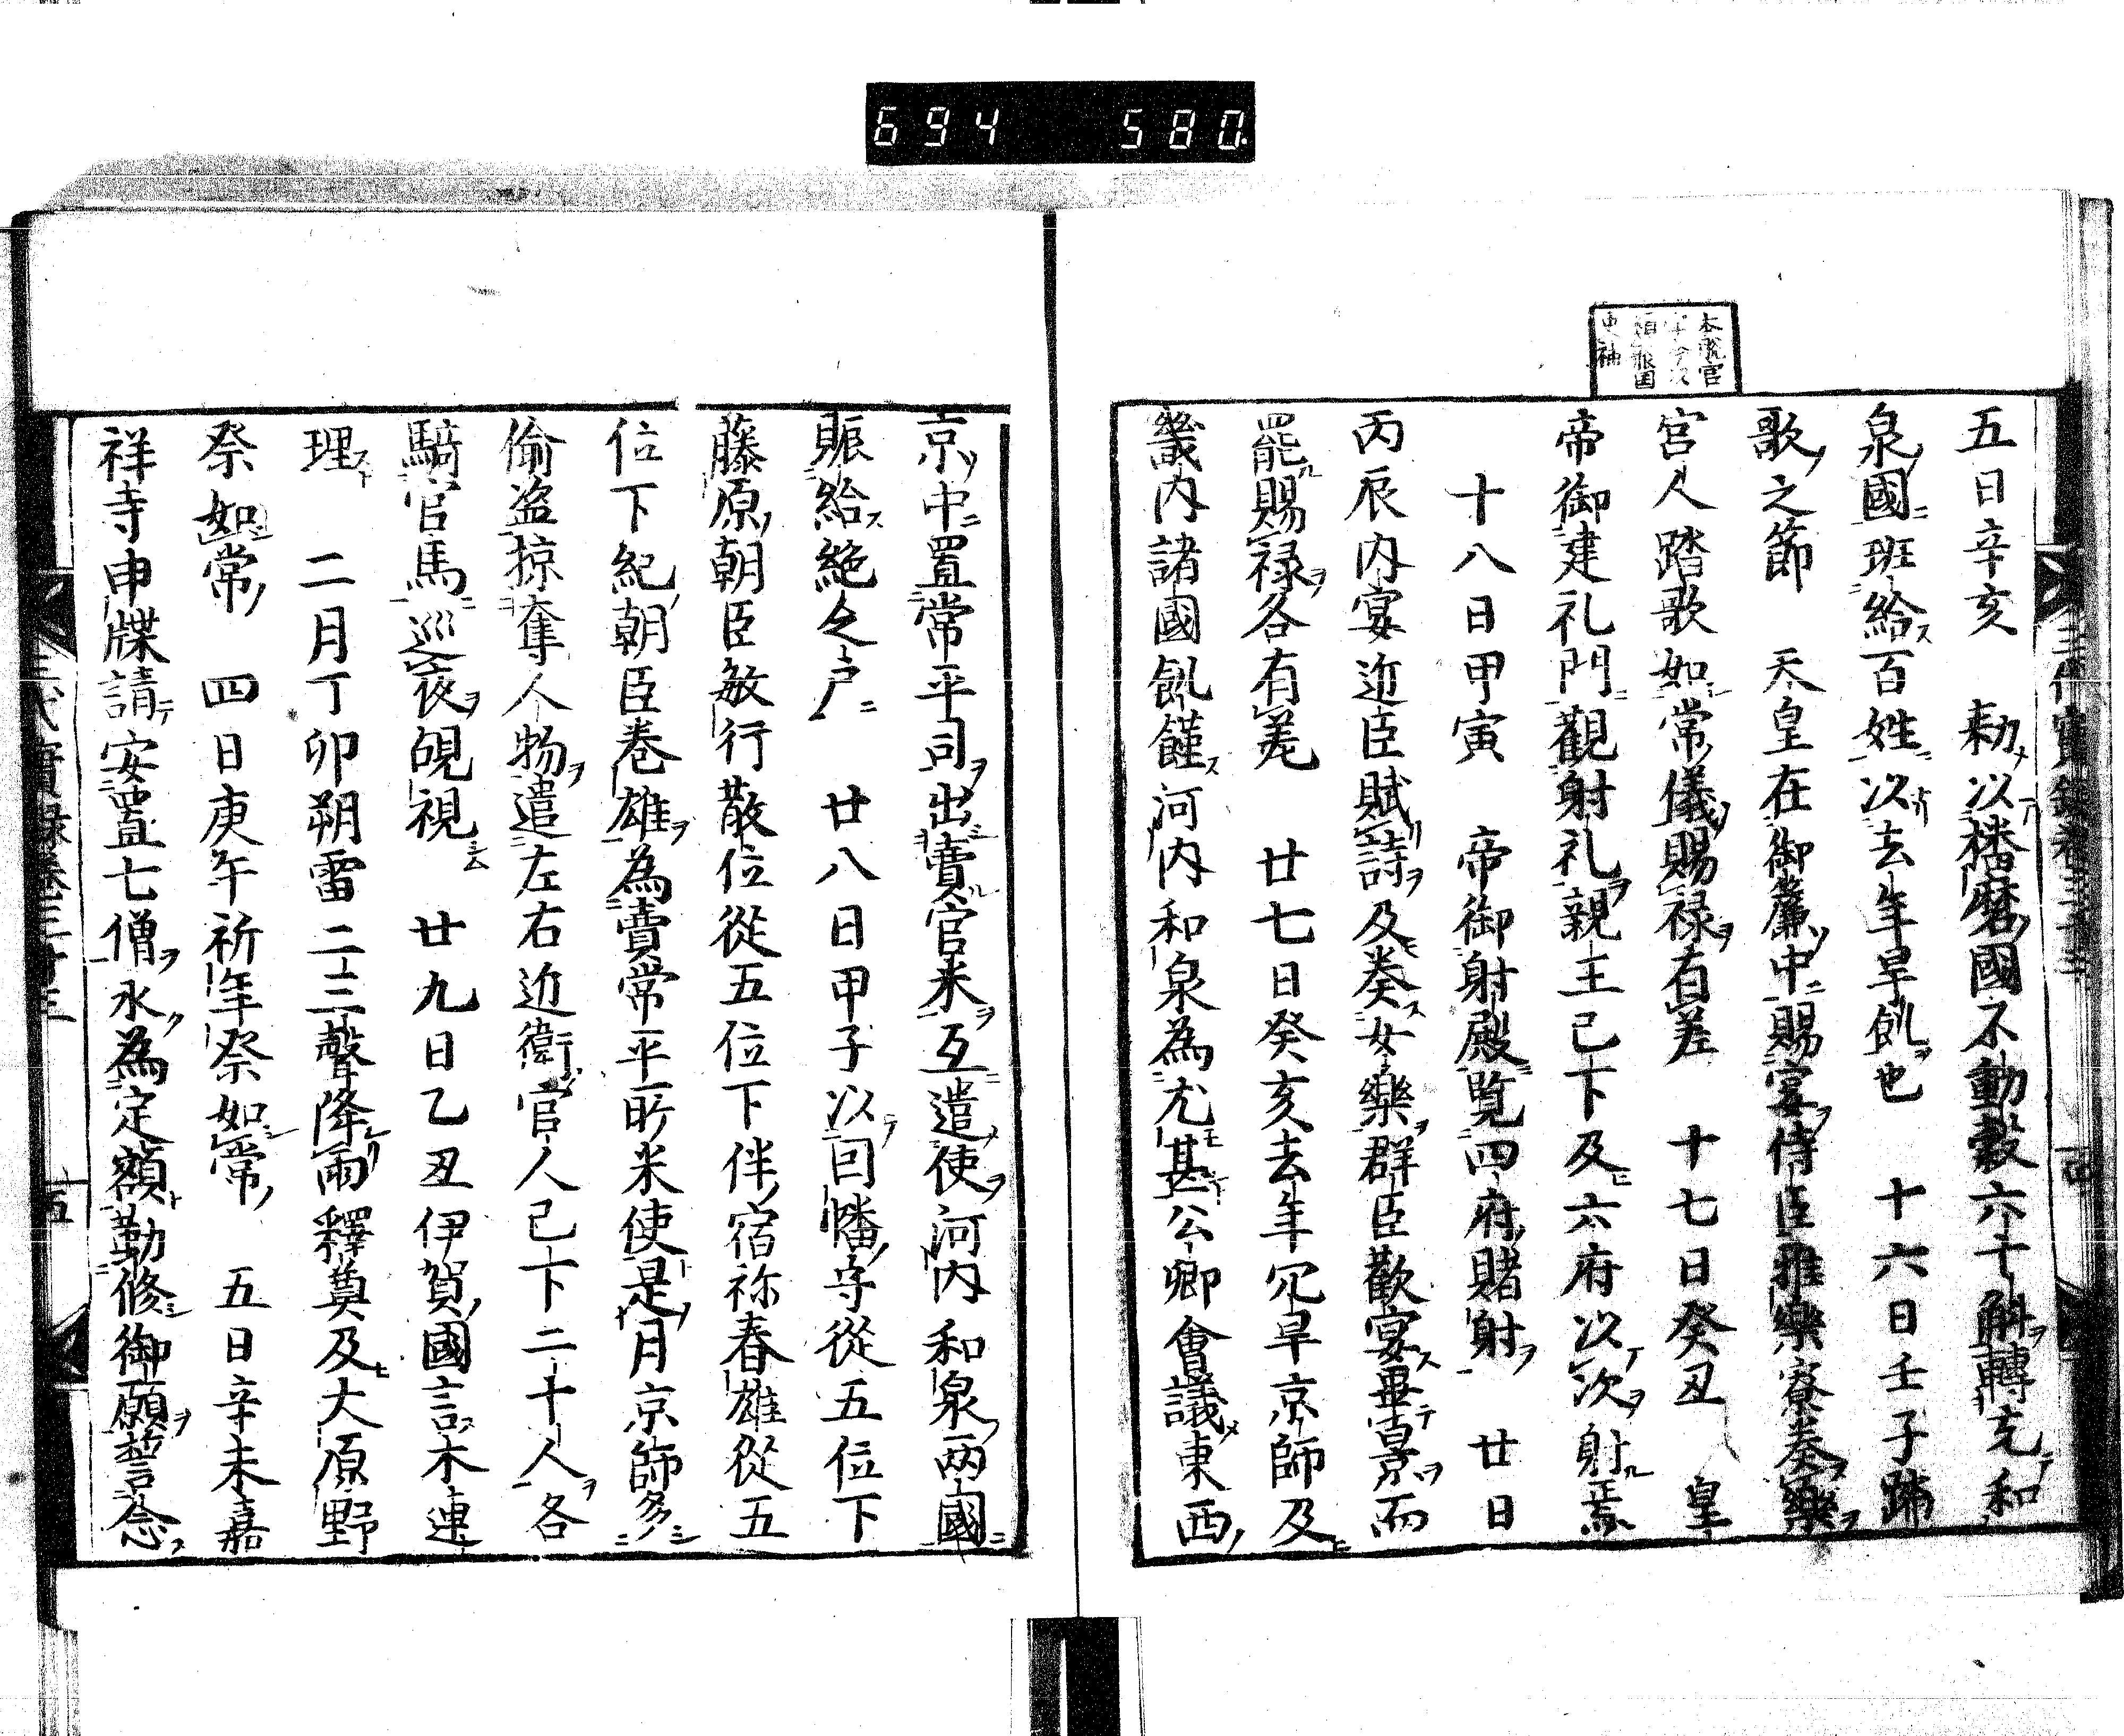 694 580.
五日辛亥 勅以播磨國不動穀六十斛轉充和
泉國班給百姓以去年旱飢也 十六日壬子踏
歌之節 天皇在御簾中賜宴侍臣雅樂寮奏樂
宮人踏歌如常儀賜禄有差 十七日癸丑 皇
帝御建礼門觀射礼親王已下及六府以次射焉
十八日甲寅 帝御射殿覧四府賭射 廿日
丙辰内宴近臣賦詩及奏女樂群臣歡宴畢景而
罷賜禄各有差 廿七日癸亥去年亢旱京師及
畿内諸國飢饉河内和泉為尤甚公卿會議東西
京中置常平司出賣官米互遣使河内和泉兩國
賑給絶乏戸 廿八日甲子以因幡守從五位下
藤原朝臣敏行散位從五位下伴宿祢春雄從五
位下紀朝臣巻雄為賣常平所米使是月京師多
偷盗掠奪人物遣左右近衛官人已下二十人各
騎官馬巡夜硯視 廿九日乙丑伊賀國言木連
理 二月丁卯朔雷二三聲降雨釋奠及大原野
祭如常 四日庚午祈年祭如常 五日辛未嘉
祥寺申牒請安置七僧永為定額勤修御願誓念
三代實録巻三十三 五